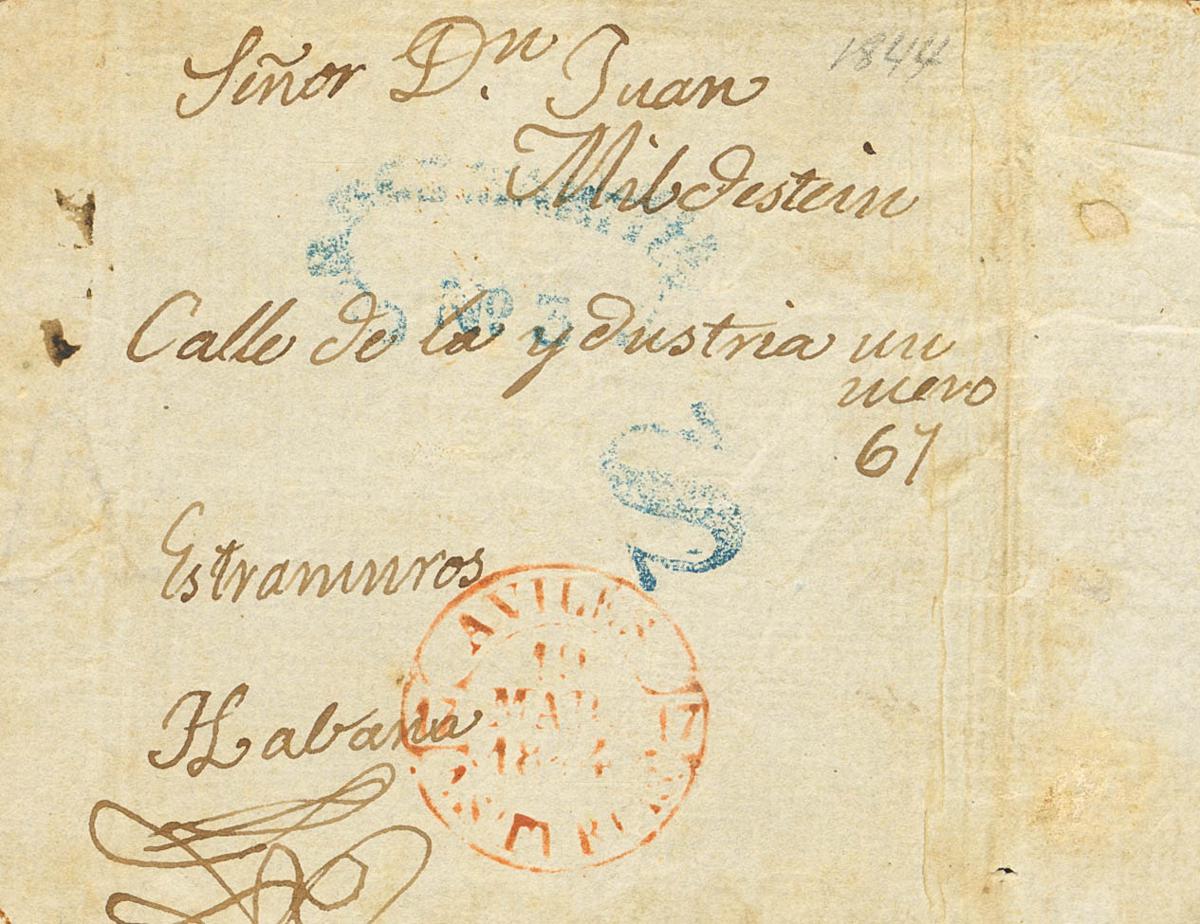 1844
Señor Dn. Juan
Mildestein
Nº 3
Calle de la ydustria un
mero
67
S
Estramuros
AVILES
19
MAR
1844
17
Habana